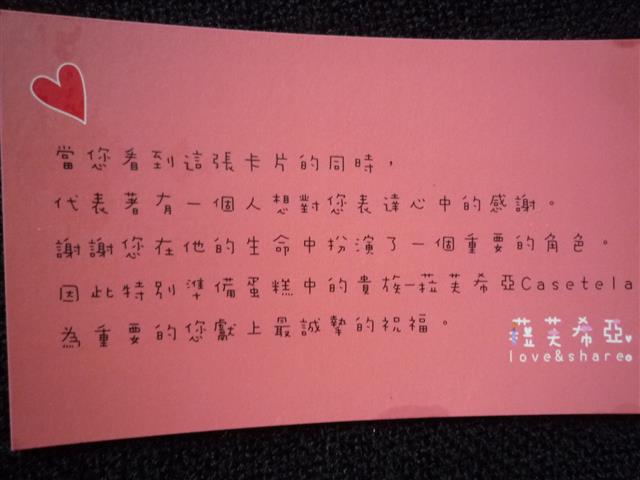 當您看到這張卡片的同時，
代表著有一個人想對您表達心中的感謝。
謝謝您在他的生命中扮演了一個重要的角色。
因此特別準備蛋糕中的貴族—菈芙希亞Casetela
為重要的您獻上最誠摯的祝福。
菈芙希亞
love&share